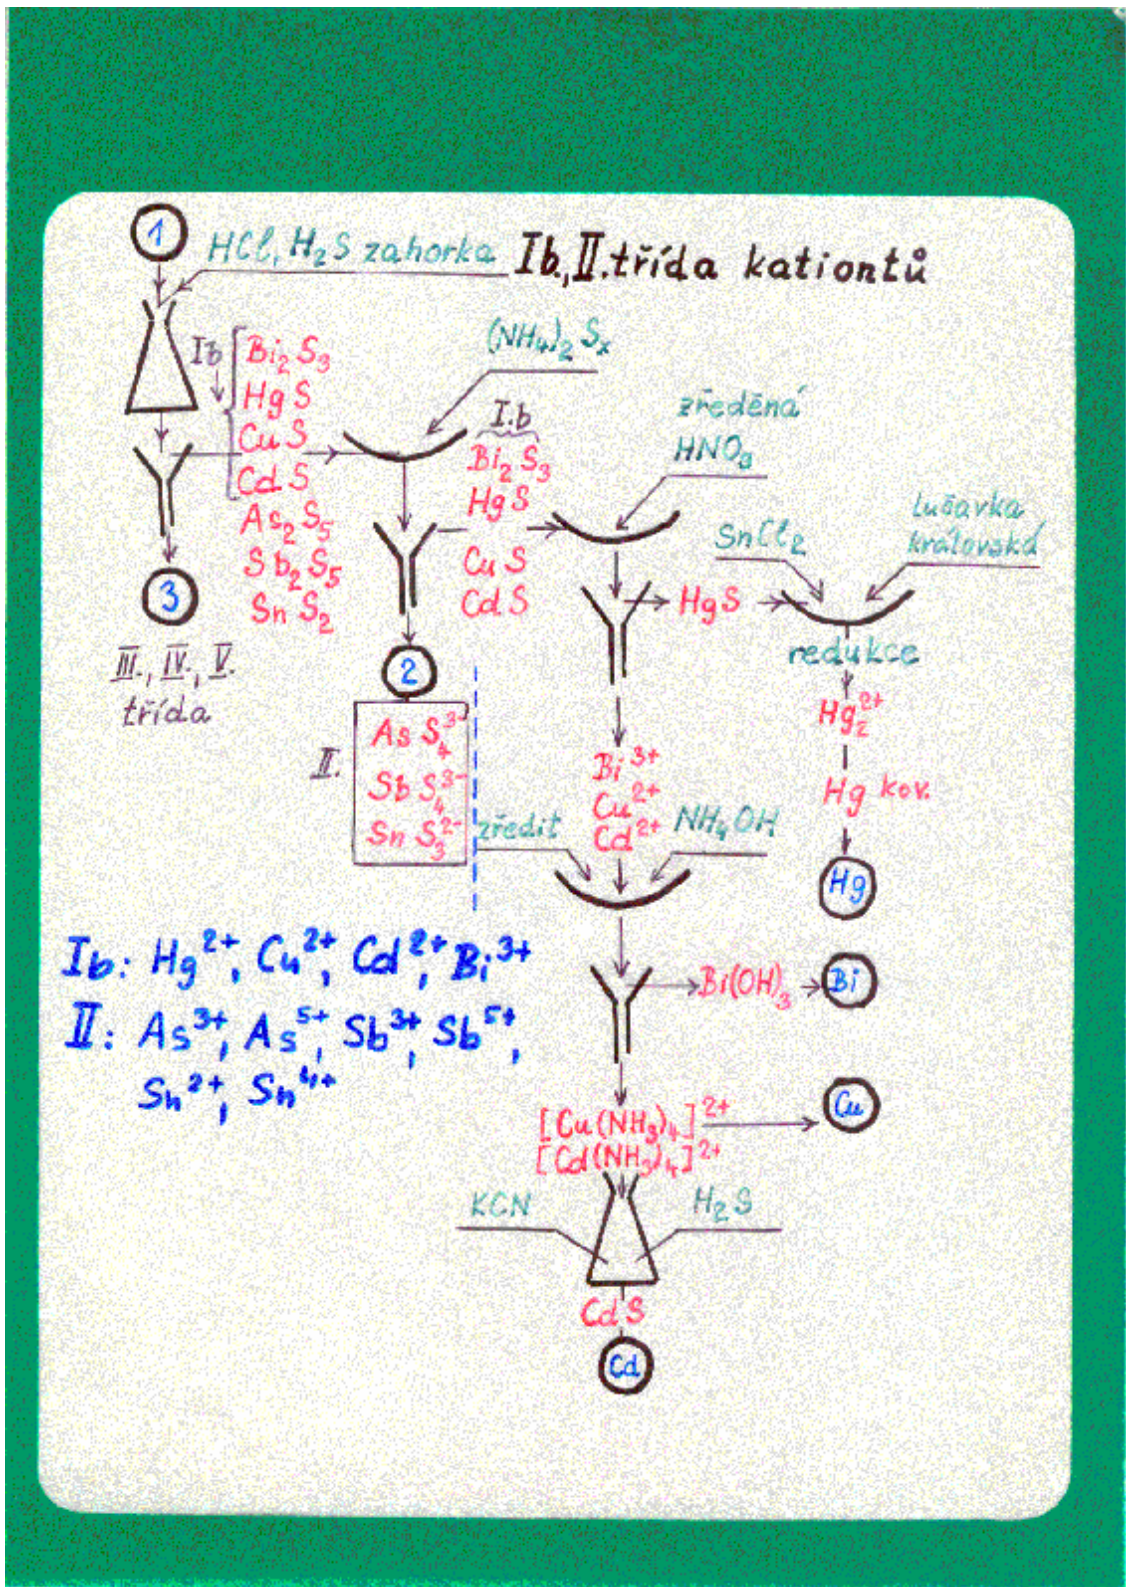 1
HCl, H₂S zahorka
Ib., II. třída kationtů
Ib
Bi₂S₃
HgS
CuS
CdS
As₂S₅
Sb₂S₅
SnS₂
3
III., IV., V.
třída
(NH₄)₂Sₓ
I.b
Bi₂S₃
HgS
CuS
CdS
2
II.
AsS₄³⁻
SbS₄³⁻
SnS₃²⁻
zředěná
HNO₃
HgS
SnCl₂
lučavka
královská
redukce
Hg₂²⁺
Hg kov.
Hg
Bi³⁺
Cu²⁺
Cd²⁺
zředit
NH₄OH
Bi(OH)₃
Bi
[Cu(NH₃)₄]²⁺
Cu
[Cd(NH₃)₄]²⁺
KCN
H₂S
CdS
Cd
Ib: Hg²⁺, Cu²⁺, Cd²⁺, Bi³⁺
II: As³⁺, As⁵⁺, Sb³⁺, Sb⁵⁺,
Sn²⁺, Sn⁴⁺